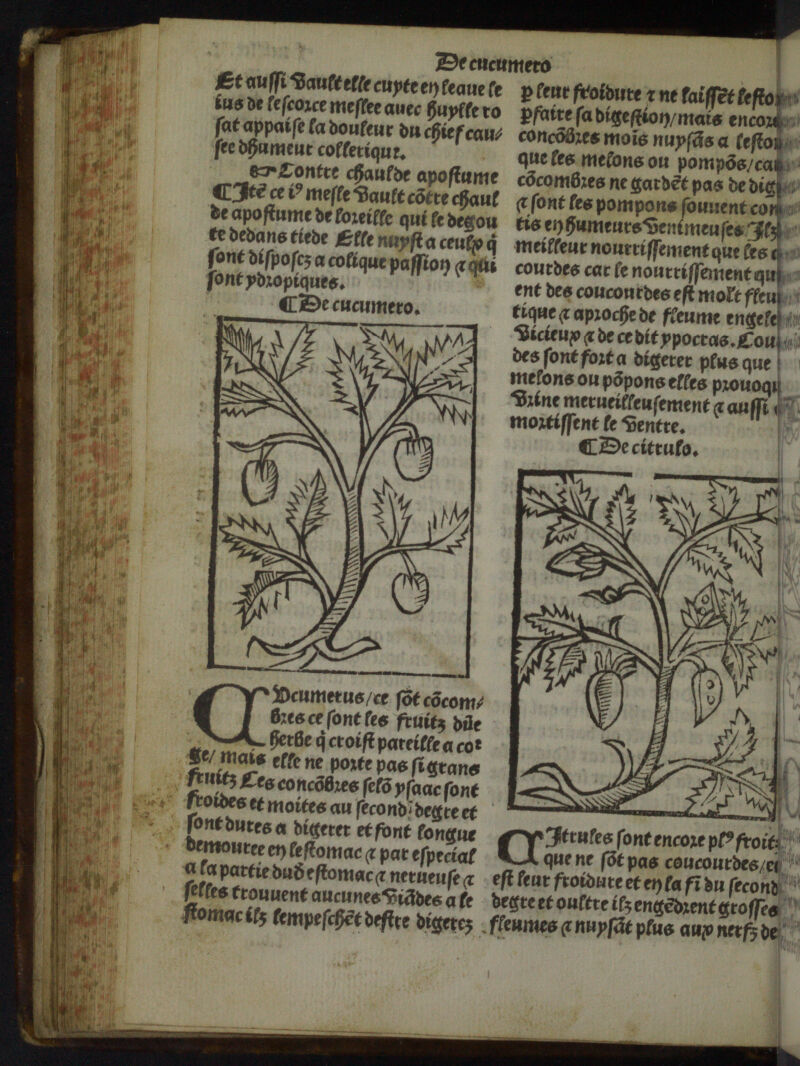 De cucumero
Et aussi vault elle cuyte en leaue le
ius de lescorce meslee auec huylle ro
sat appaise la douleur du chief cau/
see dhumeur collerique.
☞ Contre chaulde apostume
¶ Itē ce iꝰ mesle vault cōtre chaul
de apostume de loreille qui le degou
te dedans tiede Elle nuyst a ceulx q̄
sont disposez a colique passion ⁊ qui
sont ydropiques.
¶ De cucumero.
CUcumerus/ce sōt cōcom/
bres ce sont les fruitz dūe
herbe q̄ croist pareille a
ge/ mais elle ne porte pas si grans
fruitz Les concōbres selō ysaac sont
froides et moites au second degre et
sont dures a digerer et font longue
demouree en lestomac ⁊ par especial
a la partie estomac ⁊ nerueuse ⁊
selles trouuent aucunes viādes a le
stomac ilz lempeschēt destre digerez
p leur froidure ⁊ ne laissēt lesto
pfaire sa digestion/mais encore
concōbres mois nuysās a lesto
que les melons ou pompōs/car
cōcombres ne gardēt pas de dig
⁊ sont les pompons souuent con
tis en humeurs venimeuses Ilz
meilleur nourrissement que les c
courdes car le nourrissement qui
ent des coucourdes est molt fleu
tique ⁊ aproche de fleume engele
vicieux ⁊ de ce dit ypocras. Cou
des sont fort a digerer plus que
melons ou pōpons elles prouoqu
vrine merueilleusement ⁊ aussi
mortissent le ventre.
¶ De citrulo.
CItrules sont encore plꝰ froit
que ne sōt pas coucourdes/et
est leur froidure et en la fī du second
degre et oultre ilz engēdrent grosses
fleumes ⁊ nuysāt plus aux nerfz de